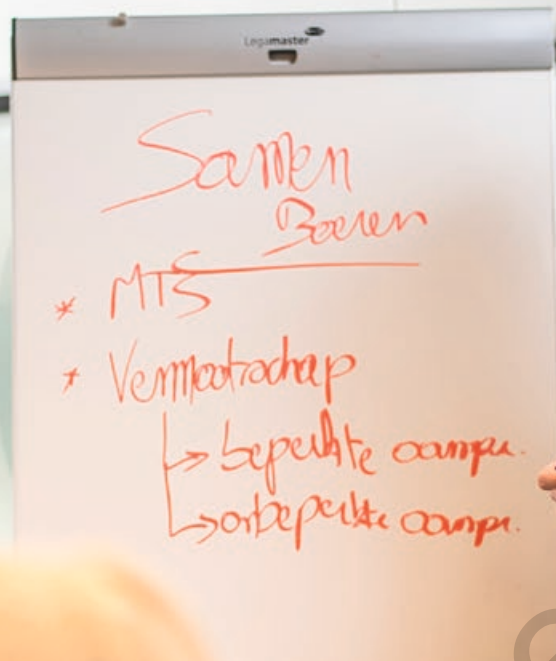 Legamaster
Samen
Boeren
* MTS
* Vennootschap
→ beperkte aanspr.
→ onbeperkte aanspr.